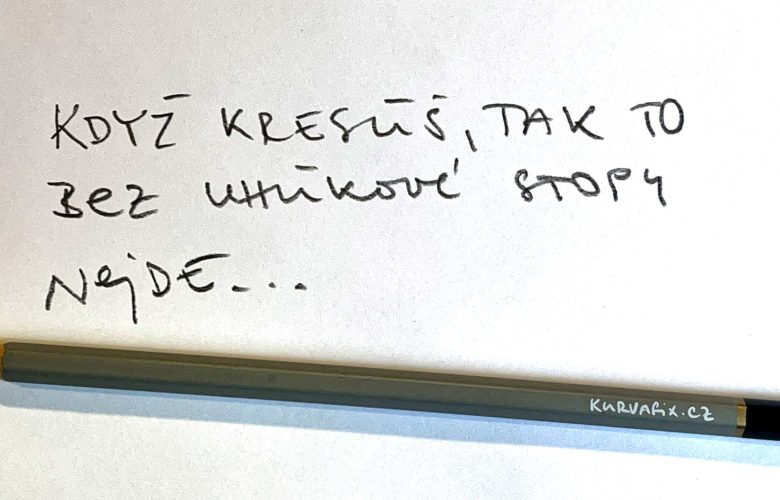 KDYŽ KRESLÍŠ, TAK TO
BEZ UHLÍKOVÉ STOPY
NEJDE...
KURVAFIX.CZ